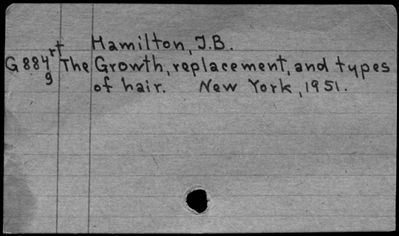 Hamilton, J.B.
G884rt The Growth, replacement, and types
g of hair. New York, 1951.